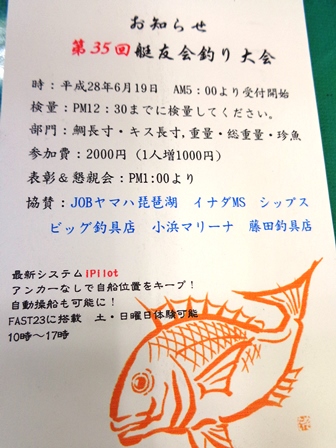 お知らせ
第35回艇友会釣り大会
時：平成28年6月19日　AM5：00より受付開始
検量：PM12：30までに検量してください。
部門：鯛長寸・キス長寸,重量・総重量・珍魚
参加費：2000円（1人増1000円）
表彰＆懇親会：PM1:00より
協賛：JOBヤマハ琵琶湖　イナダMS　シップス
ビッグ釣具店　小浜マリーナ　藤田釣具店
最新システムiPilot
アンカーなしで自船位置をキープ！
自動操船も可能に！
FAST23に搭載　土・日曜日体験可能
10時～17時